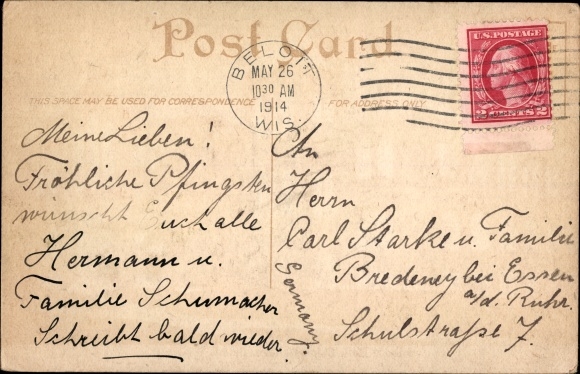 Post Card
BELOIT
MAY 26
10 30 AM
1914
WIS.
U.S. POSTAGE
2 CENTS 2
THIS SPACE MAY BE USED FOR CORRESPONDENCE
FOR ADDRESS ONLY
Meine Lieben!
Fröhliche Pfingsten
wünscht Euch alle
Hermann u.
Familie Schumacher
Schreibt bald wieder.
An
Herrn
Carl Starke u. Familie
Bredeney bei Essen
a/d. Ruhr.
Schulstraße 7.
Germany.